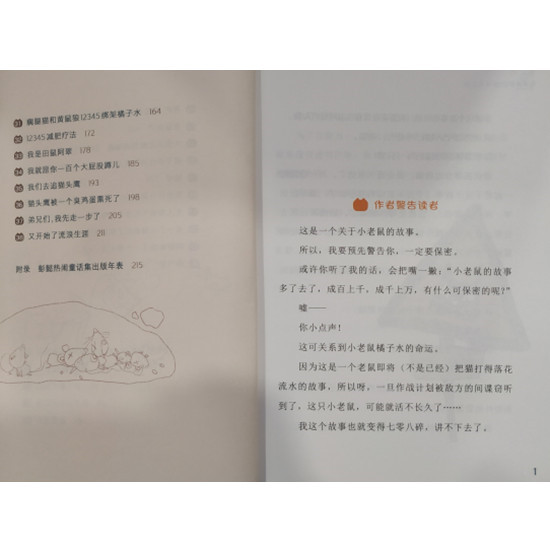 31 瘸腿猫和黄鼠狼12345绑架橘子水 164
32 12345减肥疗法 172
33 我是田鼠阿草 178
34 我就跟你一百个大屁没蹲儿 185
35 我们去追猫头鹰 193
36 猫头鹰被一个臭鸡蛋熏死了 198
37 弟兄们,我先走一步了 205
38 又开始了流浪生涯 209
附录 彭懿热闹童话集出版年表 215
作者警告读者
这是一个关于小老鼠的故事。
所以,我要预先警告你,一定要保密。
或许你听了我的话,会把嘴一撇:“小老鼠的故事
多了去了,成百上千,成千上万,有什么可保密的呢?”
嘘——
你小点声!
这可关系到小老鼠橘子水的命运。
因为这是一个老鼠即将(不是已经)把猫打得落花
流水的故事,所以呀,一旦作战计划被敌方的间谍窃听
到了,这只小老鼠,可能就活不长久了……
我这个故事也就变得七零八碎,讲不下去了。
1